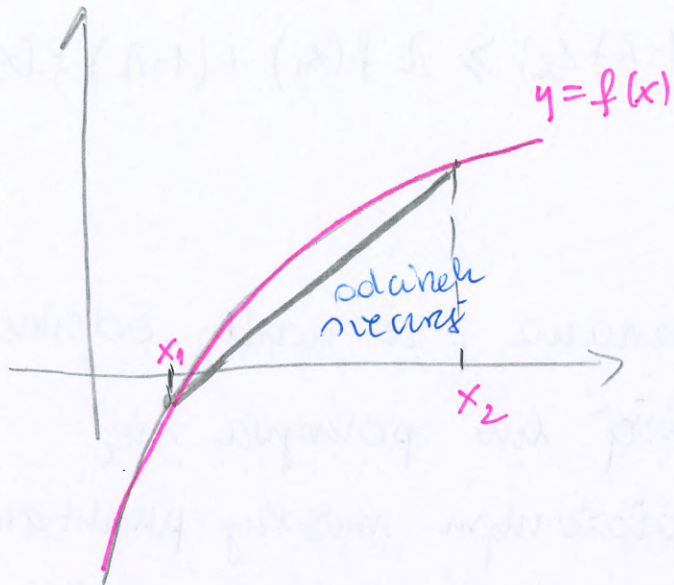 y = f(x)
odcinek
siecznej
x₁
x₂